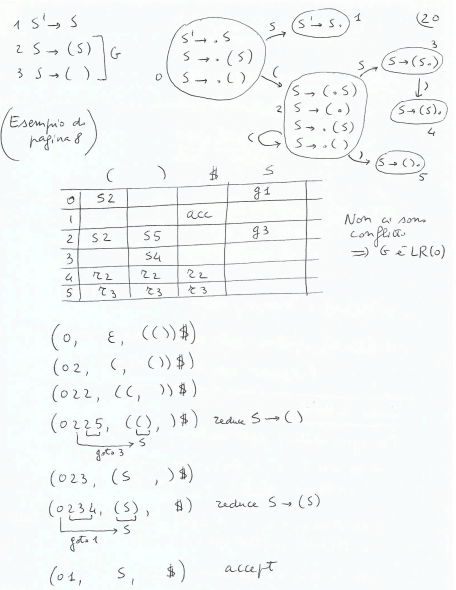 (20
1 S' → S
2 S → (S)
3 S → ( )
G
(Esempio di
pagina 8)
0
S' → .S
S → .(S)
S → .( )
S
S' → S.
1
(
2
S → (.S)
S → (.)
S → .(S)
S → .( )
(
S
S → (S.)
3
)
S → (S).
4
)
S → ().
5
( ) $ S
0 S2 g1
1 acc
2 S2 S5 g3
3 S4
4 r2 r2 r2
5 r3 r3 r3
Non ci sono
conflitti
⇒ G è LR(0)
(0, ε, (())$)
(02, (, ())$)
(022, ((, ))$)
(0225, ((), )$) reduce S → ()
goto 3 S
(023, (S , )$)
(0234, (S), $) reduce S → (S)
goto 1 S
(01, S, $) accept